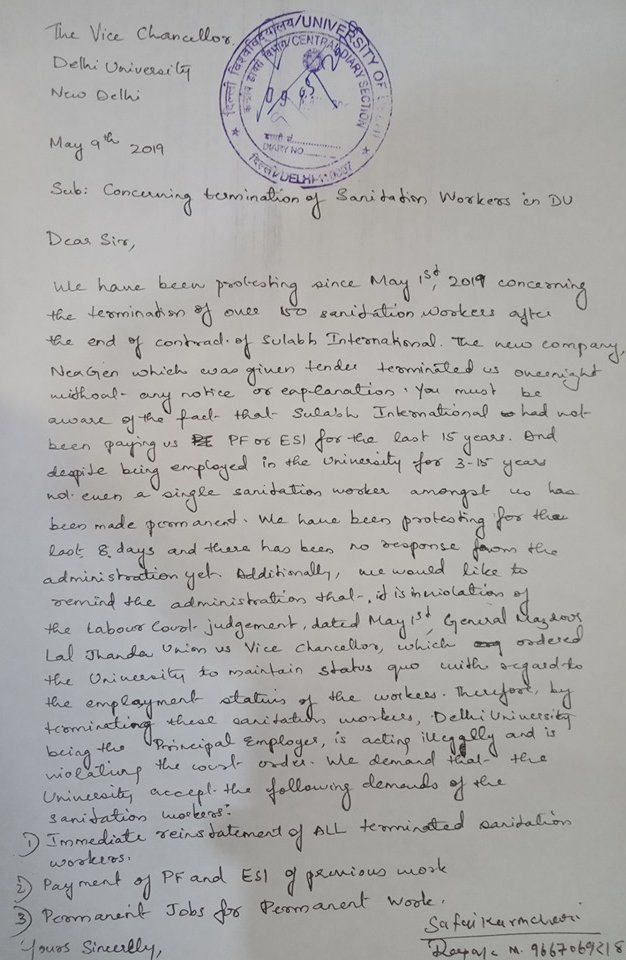 The Vice Chancellor,
Delhi University
New Delhi
दिल्ली विश्वविद्यालय/UNIVERSITY OF DELHI
केन्द्रीय डायरी विभाग/CENTRAL DIARY SECTION
09
डायरी नं.
DIARY NO
दिल्ली/DELHI-110007
May 9th 2019
Sub: Concerning termination of Sanitation Workers in DU
Dear Sir,
We have been protesting since May 1st, 2019 concerning
the termination of over 150 sanitation workers after
the end of contract of Sulabh International. The new company,
NexGen which was given tender terminated us overnight
without any notice or explanation. You must be
aware of the fact that Sulabh International had not
been paying us PF or ESI for the last 15 years. And
despite being employed in the University for 3-15 years
not even a single sanitation worker amongst us has
been made permanent. We have been protesting for the
last 8 days and there has been no response from the
administration yet. Additionally, we would like to
remind the administration that, it is in violation of
the Labour Court judgement, dated May 1st, General Mazdoor
Lal Jhanda Union vs Vice Chancellor, which ordered
the University to maintain status quo with regard to
the employment status of the workers. Therefore, by
terminating these sanitation workers, Delhi University
being the Principal Employer, is acting illegally and is
violating the court order. We demand that the
University accept the following demands of the
sanitation workers:
1) Immediate reinstatement of ALL terminated sanitation
workers.
2) Payment of PF and ESI of previous work
3) Permanent Jobs for Permanent Work.
Yours Sincerely,
Safai Karmchari
M. 9667069218